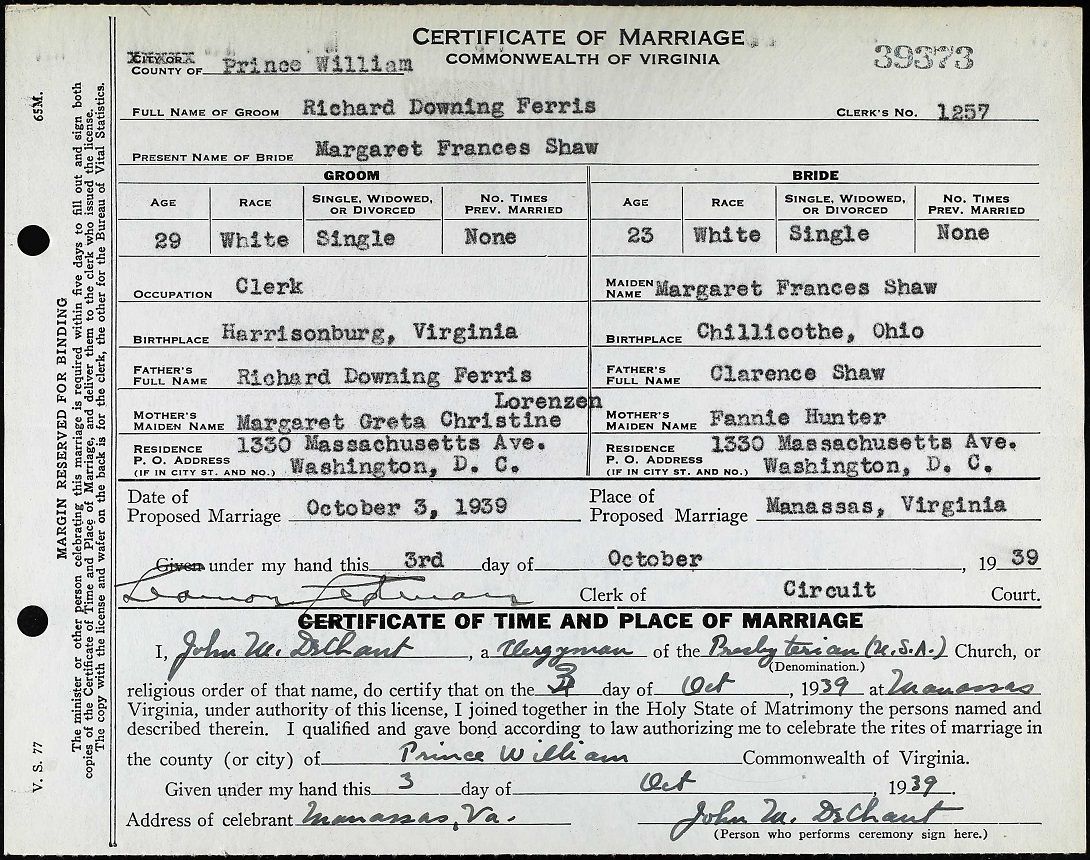 CERTIFICATE OF MARRIAGE
COMMONWEALTH OF VIRGINIA
39373
CITY OR
COUNTY OF Prince William
FULL NAME OF GROOM Richard Downing Ferris CLERK'S NO. 1257
PRESENT NAME OF BRIDE Margaret Frances Shaw
GROOM BRIDE
AGE RACE SINGLE, WIDOWED, OR DIVORCED NO. TIMES PREV. MARRIED AGE RACE SINGLE, WIDOWED, OR DIVORCED NO. TIMES PREV. MARRIED
29 White Single None 23 White Single None
OCCUPATION Clerk MAIDEN NAME Margaret Frances Shaw
BIRTHPLACE Harrisonburg, Virginia BIRTHPLACE Chillicothe, Ohio
FATHER'S FULL NAME Richard Downing Ferris FATHER'S FULL NAME Clarence Shaw
Lorenzen
MOTHER'S MAIDEN NAME Margaret Greta Christine MOTHER'S MAIDEN NAME Fannie Hunter
RESIDENCE 1330 Massachusetts Ave. RESIDENCE 1330 Massachusetts Ave.
P. O. ADDRESS (IF IN CITY ST. AND NO.) Washington, D. C. P. O. ADDRESS (IF IN CITY ST. AND NO.) Washington, D. C.
Date of Proposed Marriage October 3, 1939 Place of Proposed Marriage Manassas, Virginia
Given under my hand this 3rd day of October, 1939
Clerk of Circuit Court.
CERTIFICATE OF TIME AND PLACE OF MARRIAGE
I, John M. DeChant, a Clergyman of the Presbyterian (U.S.A.) Church, or
(Denomination.)
religious order of that name, do certify that on the 3 day of Oct, 1939 at Manassas
Virginia, under authority of this license, I joined together in the Holy State of Matrimony the persons named and
described therein. I qualified and gave bond according to law authorizing me to celebrate the rites of marriage in
the county (or city) of Prince William Commonwealth of Virginia.
Given under my hand this 3 day of Oct, 1939.
Address of celebrant Manassas, Va. John M. DeChant
(Person who performs ceremony sign here.)
V. S. 77 MARGIN RESERVED FOR BINDING 65M.
The minister or other person celebrating this marriage is required within five days to fill out and sign both
copies of the Certificate of Time and Place of Marriage, and deliver them to the clerk who issued the license.
The copy with the license and wafer on the back is for the clerk, the other for the Bureau of Vital Statistics.